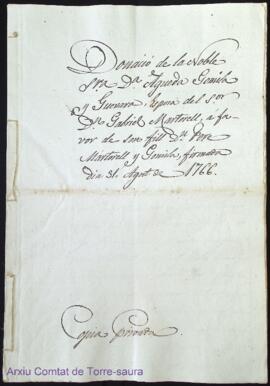 Donació de la Noble
Sra Dª. Agueda Gomila
y Guevara Espoa del Sor
Dn. Gabriel Martorell, a fa=
vor de son fill Dn. Pere
Martorell y Gomila, firmada
dia 31. Agost de 1766.
Copia privada.
Arxiu Comtat de Torre-saura